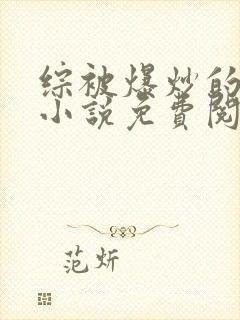 综被爆炒的
小说免費閱
范炘